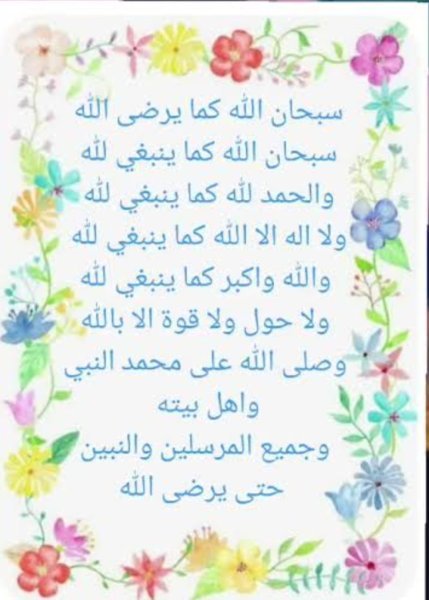 سبحان الله كما يرضى الله
سبحان الله كما ينبغي لله
والحمد لله كما ينبغي لله
ولا اله الا الله كما ينبغي لله
والله واكبر كما ينبغي لله
ولا حول ولا قوة الا بالله
وصلى الله على محمد النبي
واهل بيته
وجميع المرسلين والنبين
حتى يرضى الله